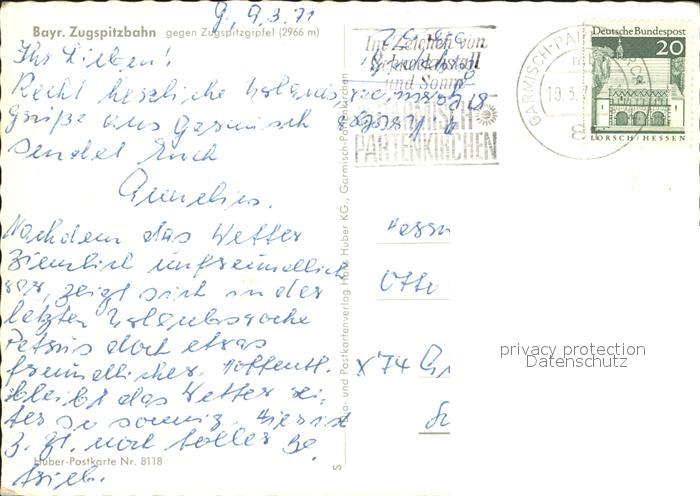 Bayr. Zugspitzbahn gegen Zugspitzgipfel (2966 m)
G, 9.3.71
Ihr Lieben!
Recht herzliche Urlaubs
grüße aus Garmisch
sendet Euch
Annelies.
Nachdem das Wetter
ziemlich unfreundlich
war, zeigt sich in der
letzten Urlaubswoche
Petrus doch etwas
freundlicher. Hoffentl.
bleibt das Wetter wei-
ter so sonnig. Hier ist
z. Zt. noch toller Be
trieb.
Huber-Postkarte Nr. 8118
Im Zeichen von
und Sonne
GARMISCH-
PARTENKIRCHEN
GARMISCH-PA
10.3.
8
Deutsche Bundespost
20
LORSCH/HESSEN
Herrn
Otto
X74
privacy protection
Datenschutz
- und Postkartenverlag Hans Huber KG., Garmisch-Partenkirchen
S